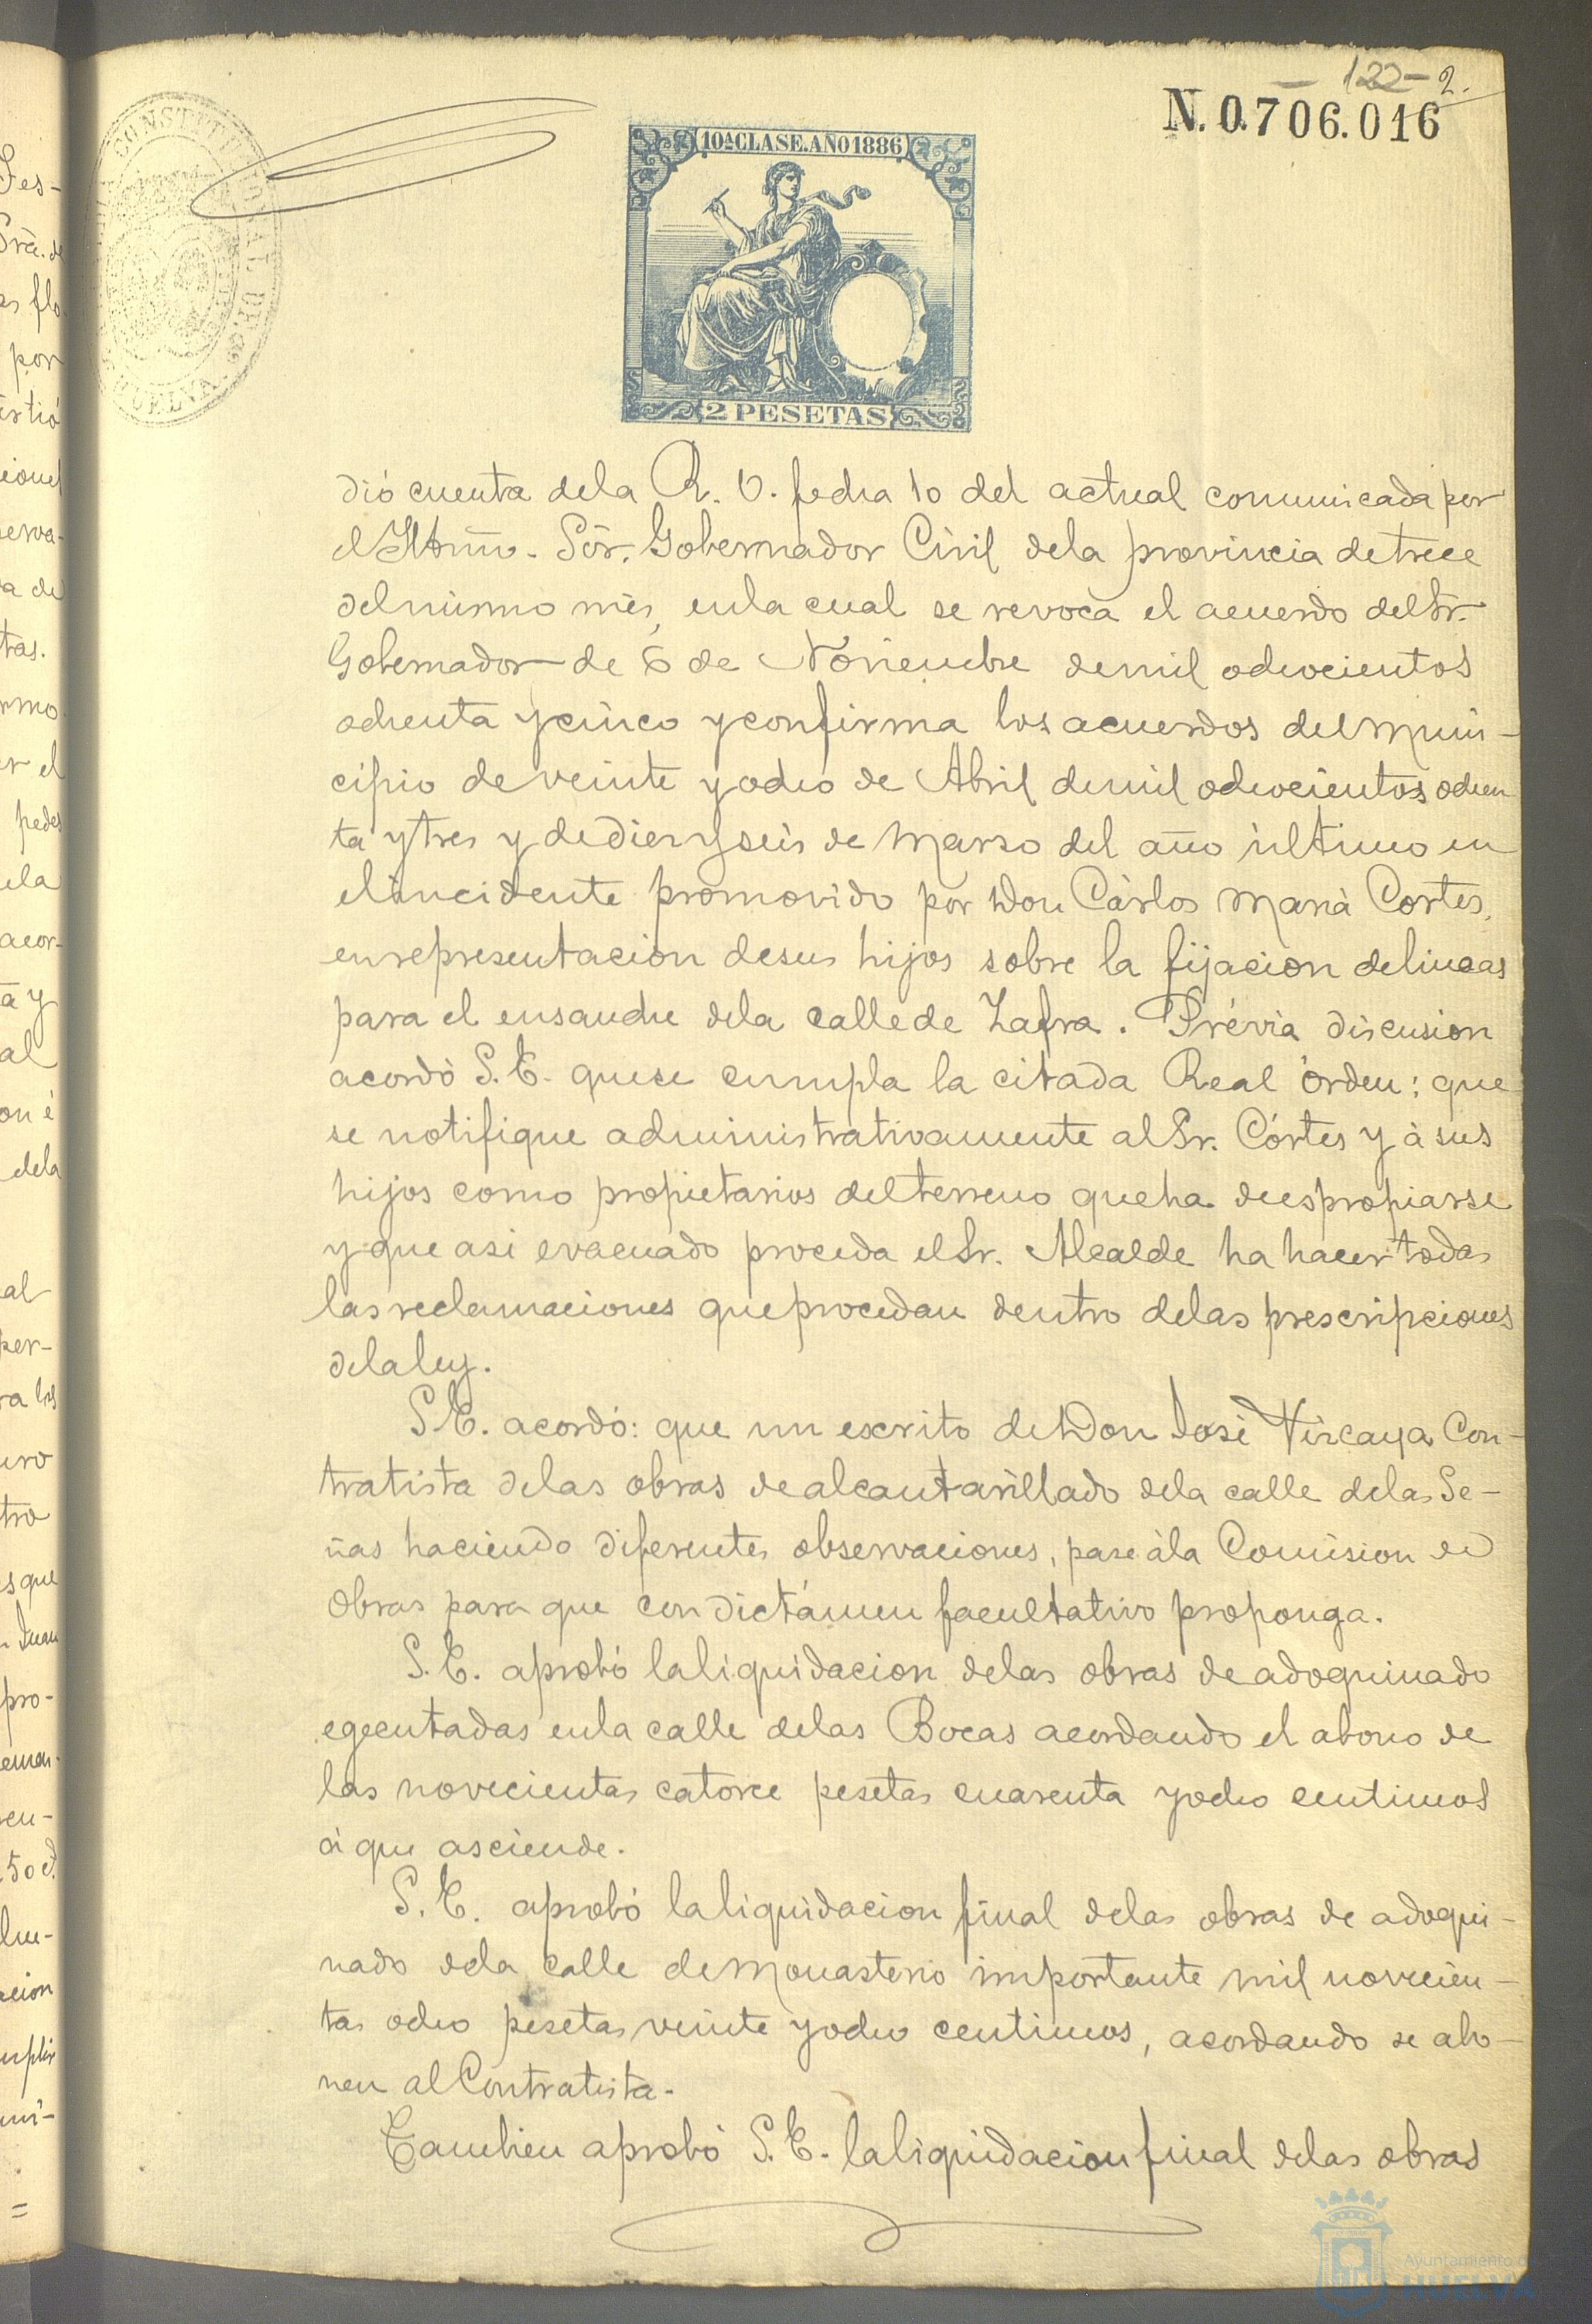 122-2.
N.0.706.016
CONSTITUCIONAL DE HUELVA
10ª CLASE.AÑO1886
2 PESETAS
dió cuenta dela R. O. fecha 10 del actual comunicada por
el Iltmo. Sör. Gobernador Civil dela provincia de trece
del mismo més, enla cual se revoca el acuerdo del Sr.
Gobernador de 6 de Noviembre de mil ochocientos
ochenta y cinco y confirma los acuerdos del Muni-
cipio de veinte y ocho de Abril de mil ochocientos ochen
ta y tres y de diez y seis de Marzo del año último en
el incidente promovido por Don Cárlos Mariá Cortes,
en representacion de sus hijos sobre la fijacion de lineas
para el ensanche dela calle de Zafra. Prévia discusion
acordó S.E. que se cumpla la citada Real órden: que
se notifique administrativamente al Sr. Córtes y à sus
hijos como propietarios del terreno que ha de espropiarse
y que asi evacuado proceda el Sr. Alcalde ha hacer todas
las reclamaciones que procedan dentro delas prescripciones
dela ley.
S.E. acordó: que un escrito de Don José Vizcaya Con-
tratista delas obras de alcantarillado dela calle delas Se-
ñas haciendo diferentes observaciones, pase àla Comision de
Obras para que con dictámen facultativo proponga.
S.E. aprobó la liquidacion delas obras de adoquinado
egecutadas enla calle delas Bocas acordando el abono de
las novecientas catorce pesetas cuarenta y ocho centimos
á que asciende.
S.E. aprobó la liquidacion final delas obras de adoqui-
nado dela calle de Monasterio importante mil novecien-
tas ocho pesetas veinte y ocho centimos, acordando se abo-
nen al Contratista.
Tambien aprobó S.E. la liquidacion final delas obras
Ayuntamiento de
HUELVA